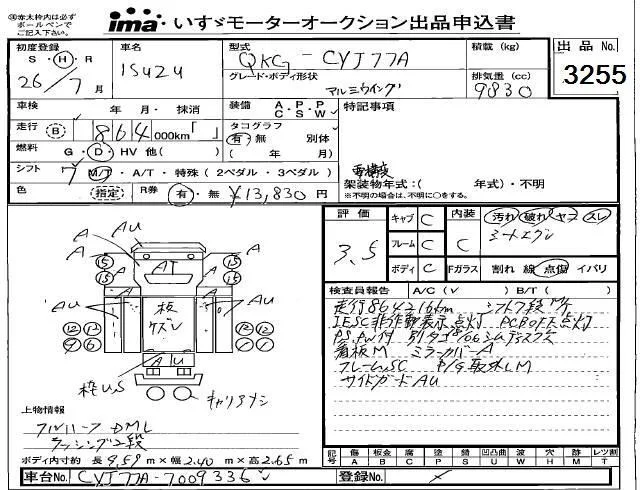 ※赤太枠内は必ずボールペンでご記入下さい。
ima いすゞモーターオークション出品申込書
初度登録 S・H・R 26/7月
車名 ISUZU
型式 QKG-CYJ77A
グレード・ボディ形状 アルミウイング
積載(kg)
排気量(cc) 9830
出品No. 3255
車検 年・月・抹消
装備 A・P・P C・S・W
特記事項
走行 B 864000km「 」
タコグラフ 有・無 別体 ( 年 月)
燃料 G・D・HV 他( )
シフト 7 M/T・A/T・特殊(2ペダル・3ペダル)
架装物年式:( 年式)・不明
※不明の場合は、不明に○をする。
色 (指定) R券 有・無 ¥13,830円
評価 3.5
キャブ C
フレーム C
ボディ C
内装 C
汚れ・破れ・ヤブ・スレ
シートエグレ
Fガラス 割れ 線 点傷・イバリ
検査員報告 A/C(V ) B/T( )
走行864216km シフト7段M/T
IESC非作動表示点灯 PCS OFF点灯
看板M ミラーカバーA
フレームSC
サイドガードAU
A AU
A A
A A
15 15 15 15
A A
AU AU AU
板ケズレ
12 12 12 12
9 6 1 1
A U
A
枠US
キャリアナシ
上物情報
フルハーフ DML
ラッシング2段
ボディ内寸約 長9.59m×幅2.40m×高2.65m
記号 傷 A 板金 B 腐 C 塗 P 錆 S 凹凸曲 U 波 W 穴 H 跡 M レツ割 T
車台No. CYJ77A-7009336
登録No.